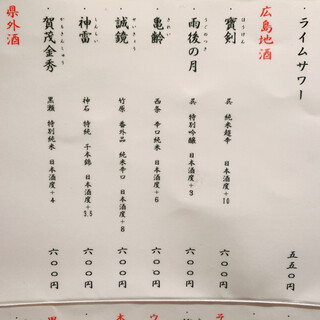 ・ライムサワー 五五〇円
広島地酒
・寳剣 ほうけん 呉 純米超辛 日本酒度+10 六〇〇円
・雨後の月 うごのつき 呉 特別吟醸 日本酒度+3 六〇〇円
・亀齢 きれい 西条 辛口純米 日本酒度+6 六〇〇円
・誠鏡 せいきょう 竹原 番外品 純米辛口 日本酒度+8 六〇〇円
・神雷 しんらい 神石 特純 千本錦 日本酒度+3.5 六〇〇円
・賀茂金秀 かもきんしゅう 黒瀬 特別純米 日本酒度+4 六〇〇円
県外酒